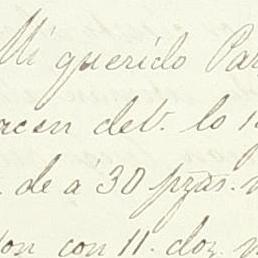 Mi querido Par
acen deb. lo 1
de a 30 pzas.
con 11. doz.